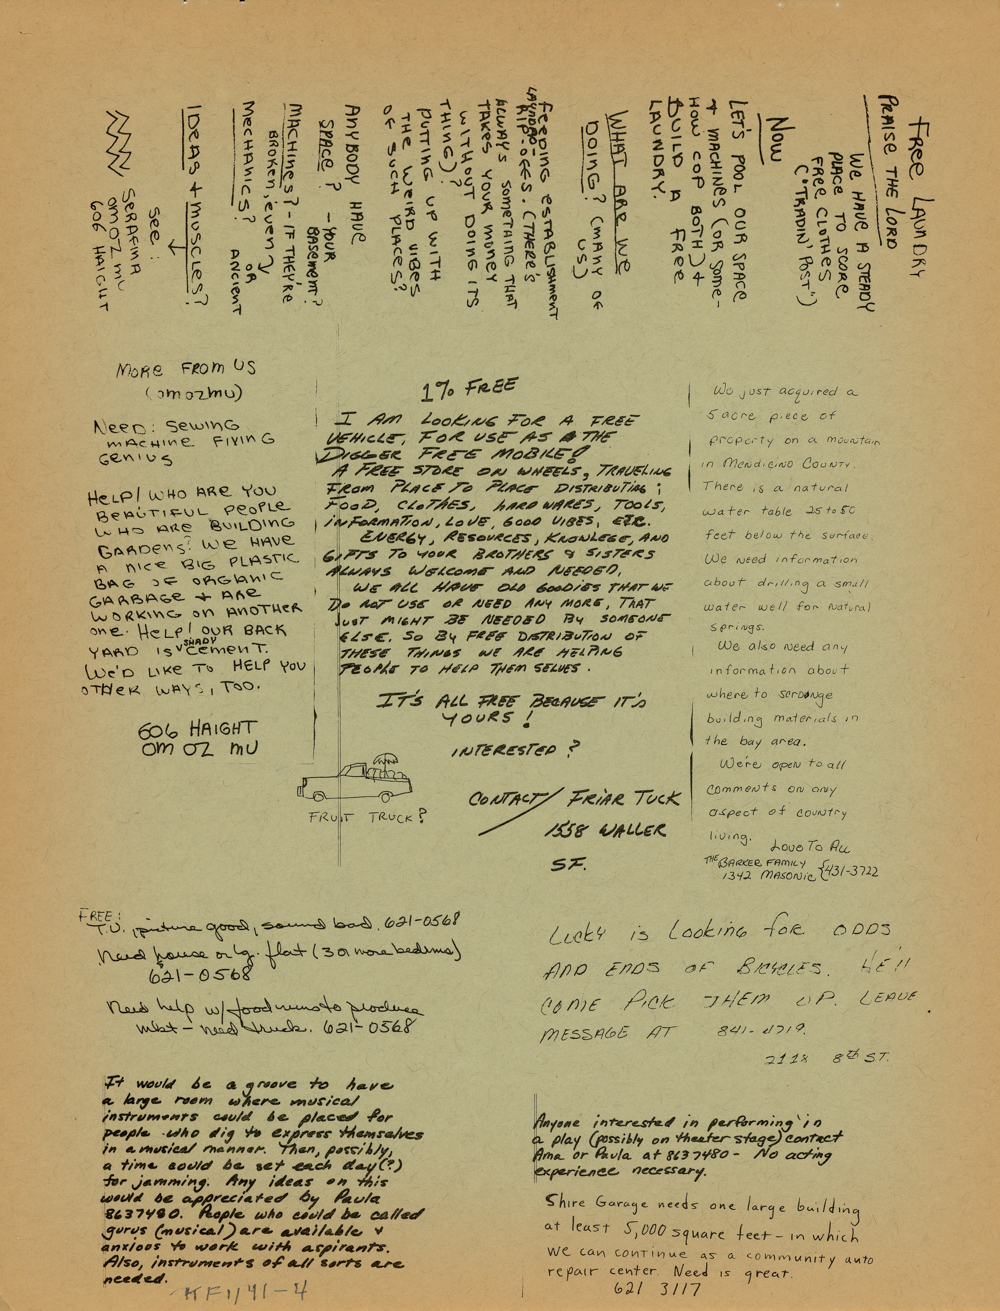 Free Laundry
PRAISE THE LORD
We HAVE A STEADY
PLACE TO SCORE
FREE CLOTHES
("TRADIN' POST")
NOW
LET'S POOL OUR SPACE
+ MACHINES (OR SOME-
HOW COP BOTH) +
BUILD A FREE
LAUNDRY.
WHAT ARE WE
DOING? (MANY OF
US)
FEEDING ESTABLISHMENT
LAUNDRO-
RIP-OFFS. (THERE'S
ALWAYS SOMETHING THAT
TAKES YOUR MONEY
WITHOUT DOING ITS
THING)?
PUTTING UP WITH
THE WEIRD VIBES
OF SUCH PLACES?
ANYBODY HAVE
SPACE? - YOUR
BASEMENT?
MACHINES? - IF THEY'RE
BROKEN, EVEN?
MECHANICS? OR
ANCIENT
IDEAS + MUSCLES?
see:
SERAFINA
OM OZ MU
606 HAIGHT
MORE FROM US
(OM OZ MU)
NEED: SEWING
MACHINE FIXING
GENIUS
HELP! WHO ARE YOU
BEAUTIFUL PEOPLE
WHO ARE BUILDING
GARDENS? WE HAVE
A NICE BIG PLASTIC
BAG OF ORGANIC
GARBAGE + ARE
WORKING ON ANOTHER
ONE. HELP! OUR BACK
YARD IS SHADY CEMENT.
WE'D LIKE TO HELP YOU
OTHER WAYS, TOO.
606 HAIGHT
OM OZ MU
1% FREE
I AM LOOKING FOR A FREE
VEHICLE, FOR USE AS THE
DIGGER FREE MOBILE!
A FREE STORE ON WHEELS, TRAVELING
FROM PLACE TO PLACE DISTRIBUTING;
FOOD, CLOTHES, HARD WARES, TOOLS,
INFORMATION, LOVE, GOOD VIBES, ETC.
ENERGY, RESOURCES, KNOWLEGE, AND
GIFTS TO YOUR BROTHERS & SISTERS
ALWAYS WELCOME AND NEEDED.
WE ALL HAVE OLD GOODIES THAT WE
DO NOT USE OR NEED ANY MORE, THAT
JUST MIGHT BE NEEDED BY SOMEONE
ELSE. SO BY FREE DISTRIBUTION OF
THESE THINGS WE ARE HELPING
PEOPLE TO HELP THEM SELVES.
IT'S ALL FREE BECAUSE IT'S
YOURS!
INTERESTED?
CONTACT/ FRIAR TUCK
1558 WALLER
S.F.
FRUIT TRUCK?
We just acquired a
5 acre piece of
property on a mountain
in Mendicino County.
There is a natural
water table 25 to 50
feet below the surface.
We need information
about drilling a small
water well for Natural
springs.
We also need any
information about
where to scrounge
building materials in
the bay area.
We're open to all
comments on any
aspect of country
living.
Love To All
THE BARKER FAMILY
1342 MASONIC {431-3722
FREE:
T.V., picture good, sound bad. 621-0568
Need house or lg. flat (3 or more bedrms)
621-0568
Need help w/ food runs to produce
mkt - need truck. 621-0568
Lucky is Looking for ODDS
AND ENDS OF BICYCLES. HE'll
COME PICK THEM UP. LEAVE
MESSAGE AT 841-4719.
2118 8th ST.
It would be a groove to have
a large room where musical
instruments could be placed for
people who dig to express themselves
in a musical manner. Then, possibly,
a time could be set each day(?)
for jamming. Any ideas on this
would be appreciated by Paula
8637480. People who could be called
gurus (musical) are available +
anxious to work with aspirants.
Also, instruments of all sorts are
needed.
Anyone interested in performing in
a play (possibly on theater stage) contact
Ama or Paula at 8637480 - No acting
experience necessary.
Shire Garage needs one large building
at least 5,000 square feet - in which
we can continue as a community auto
repair center. Need is great.
621 3117
KF1/41-4